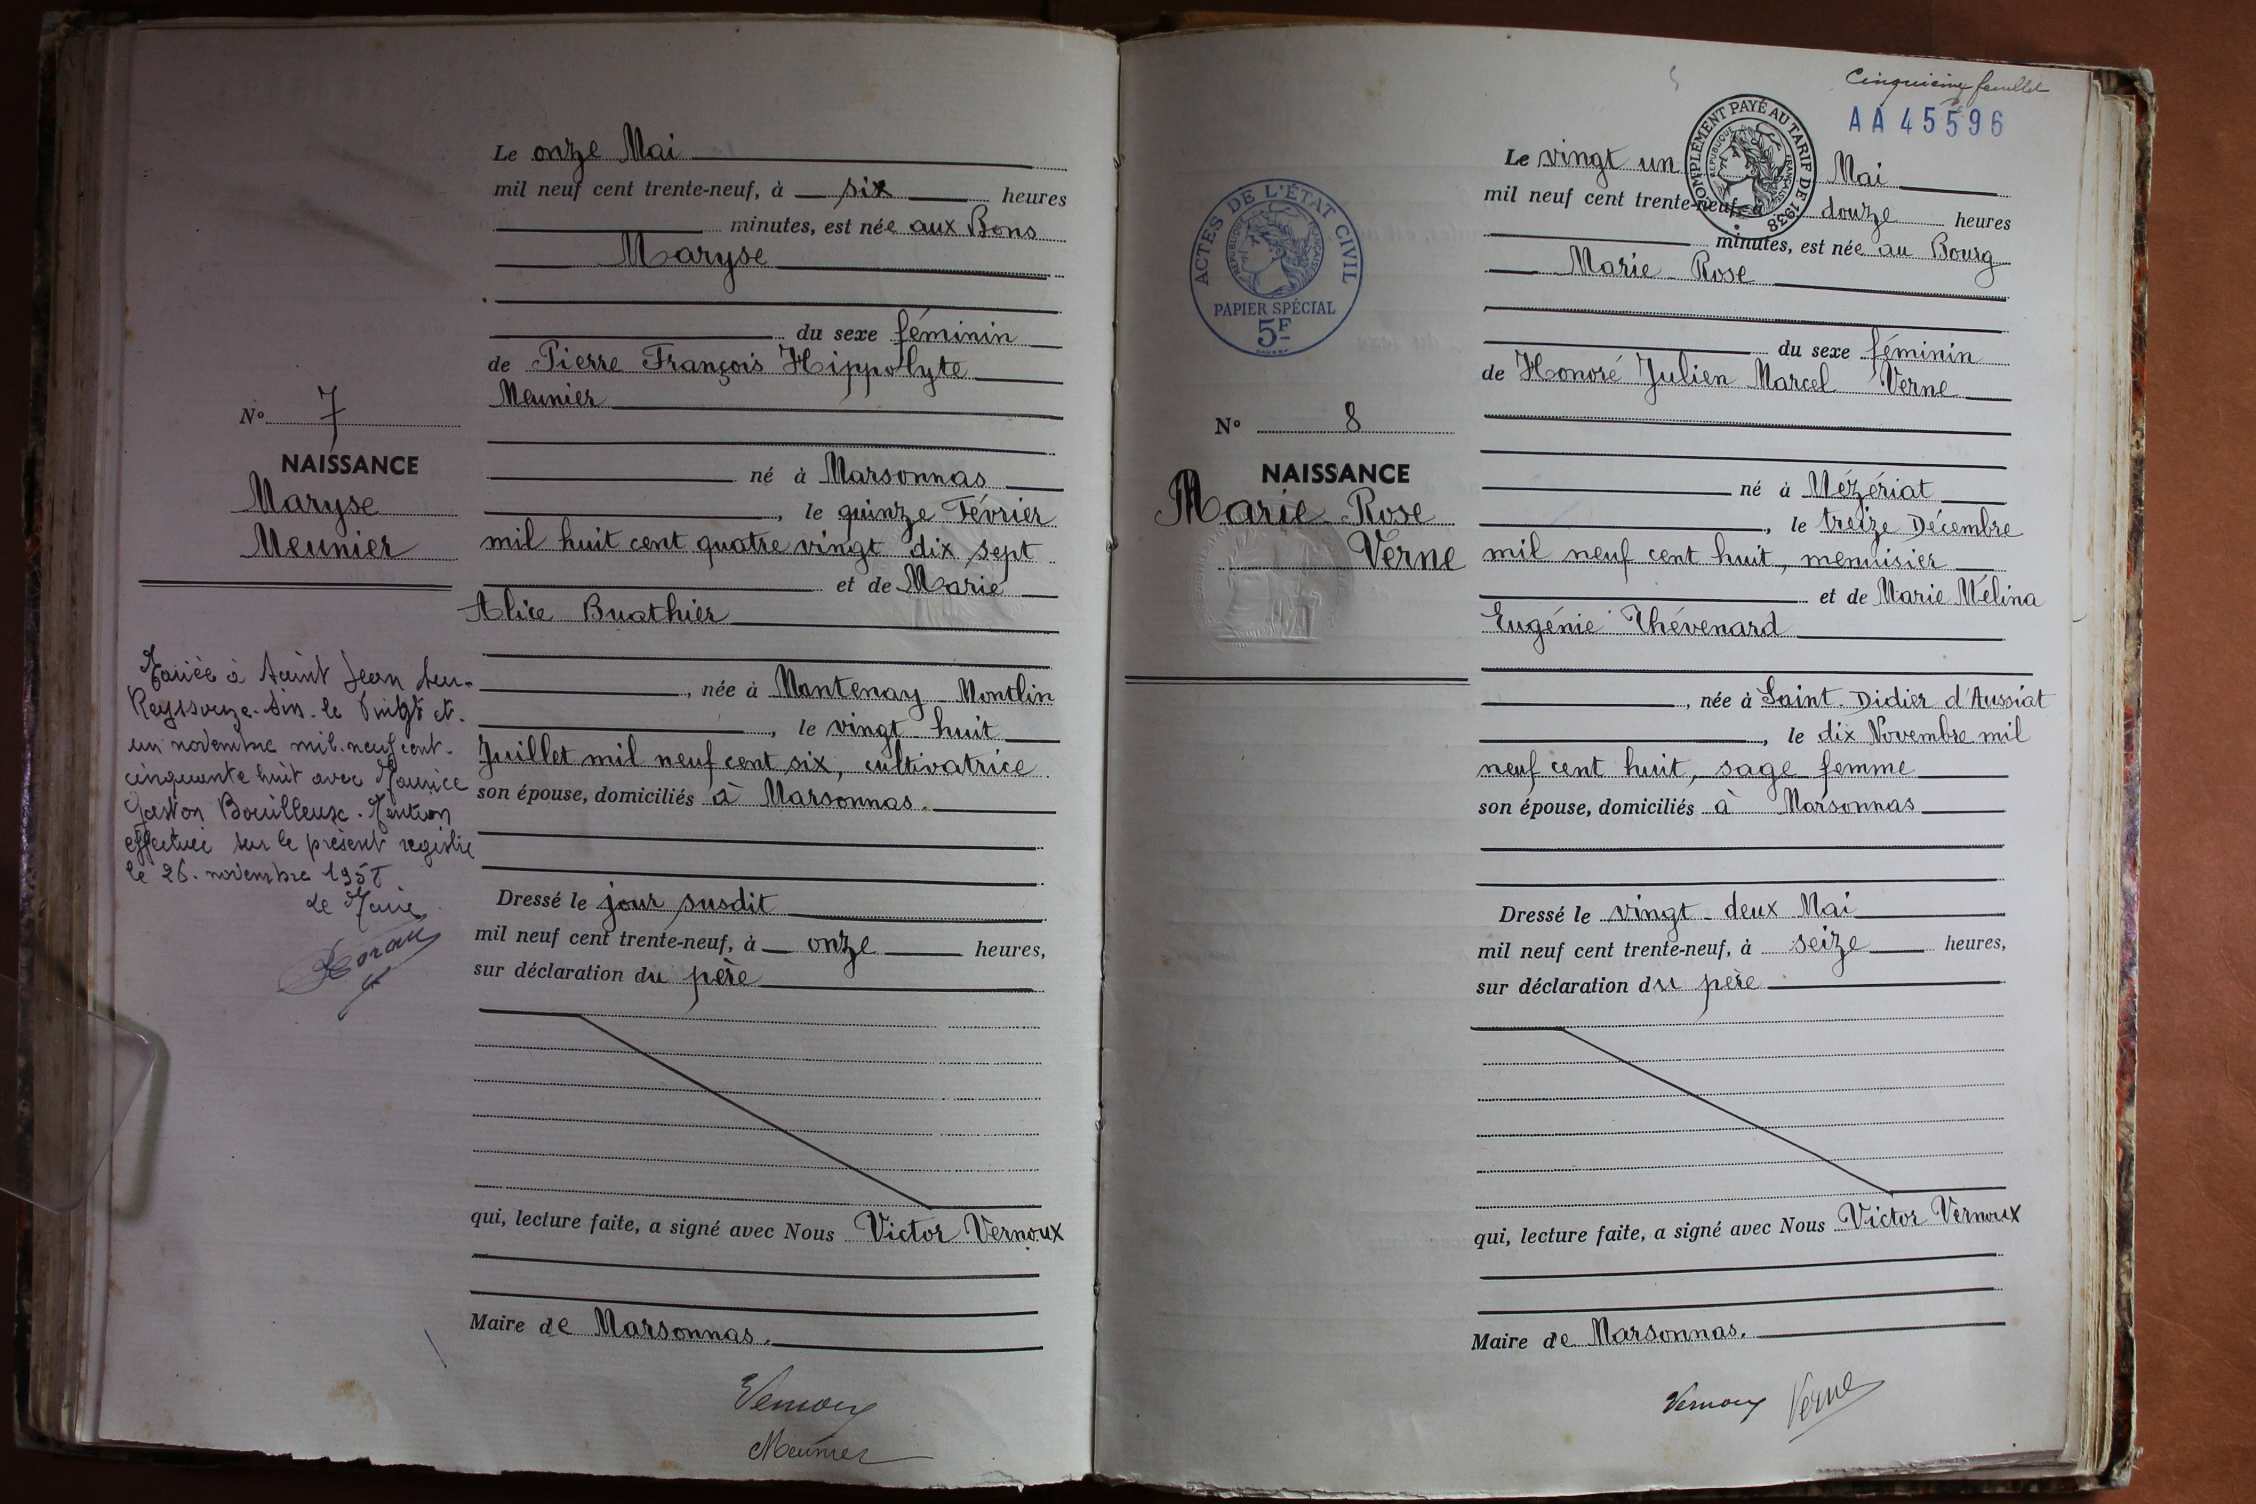 Le onze Mai
mil neuf cent trente-neuf, à six heures
minutes, est née aux Bons
Maryse
du sexe féminin
de Pierre François Hippolyte
Meunier
né à Marsonnas
, le quinze Février
mil huit cent quatre vingt dix sept
et de Marie
Alice Buathier
, née à Mantenay-Montlin
, le vingt huit
Juillet mil neuf cent six, cultivatrice
son épouse, domiciliés à Marsonnas.
Dressé le jour susdit
mil neuf cent trente-neuf, à onze heures,
sur déclaration du père
qui, lecture faite, a signé avec Nous Victor Vernoux
Maire de Marsonnas.
Vernoux
Meunier
N° 7
NAISSANCE
Maryse
Meunier
Mariée à Saint Jean sur-
Reyssouze. Ain. le Vingt et.
un novembre mil. neuf cent.
cinquante huit avec Maurice
Gaston Bouilleux. Mention
effectuée sur le présent registre
le 26. novembre 1958
Le Maire
Cinquième feuillet
AA 45596
COMPLÉMENT PAYÉ AU TARIF DE 1938
RÉPUBLIQUE FRANÇAISE
ACTES DE L'ÉTAT CIVIL
RÉPUBLIQUE FRANÇAISE
PAPIER SPÉCIAL
5F
N° 8
NAISSANCE
Marie Rose
Verne
Le vingt un Mai
mil neuf cent trente-neuf, à douze heures
minutes, est née au Bourg
Marie Rose
du sexe féminin
de Honoré Julien Marcel Verne
né à Mézériat
, le treize Décembre
mil neuf cent huit, menuisier
et de Marie Mélina
Eugénie Thévenard
, née à Saint-Didier d'Aussiat
, le dix Novembre mil
neuf cent huit, sage femme
son épouse, domiciliés à Marsonnas
Dressé le vingt-deux Mai
mil neuf cent trente-neuf, à seize heures,
sur déclaration du père
qui, lecture faite, a signé avec Nous Victor Vernoux
Maire de Marsonnas.
Vernoux Verne